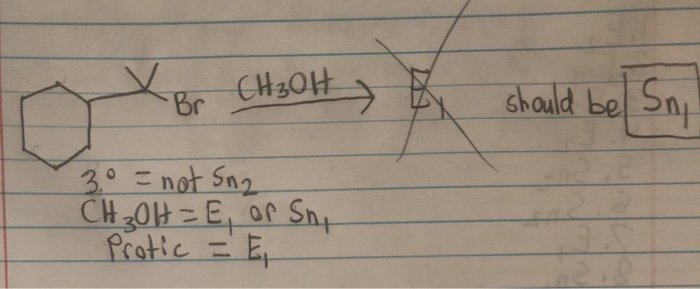 Br CH₃OH → E₁ should be Sn₁
3.° = not Sn₂
CH₃OH = E₁ or Sn₁
Protic = E₁